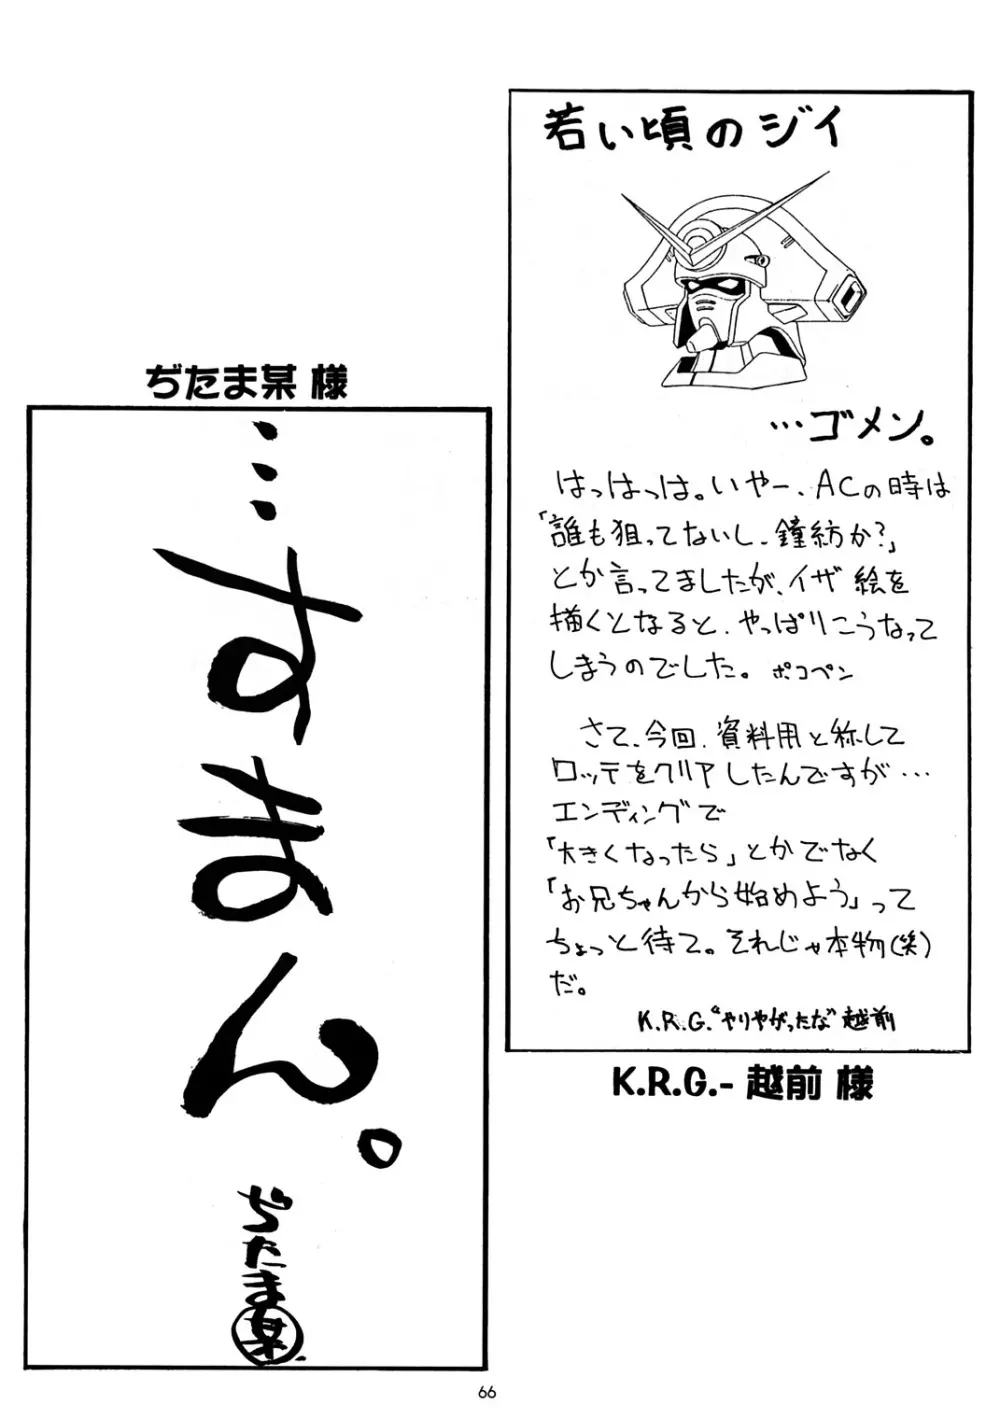 若い頃のジイ
…ゴメン。
はっはっは。いやー、ACの時は
「誰も狙ってないし、鐘紡か?」
とか言ってましたが、イザ 絵を
描くとなると、やっぱりこうなって
しまうのでした。ポコペン
さて、今回、資料用と称して
ロッテをクリアしたんですが…
エンディングで
「大きくなったら」とかでなく
「お兄ちゃんから始めよう」って
ちょっと待て。それじゃ本物(笑)
だ。
K.R.G."やりやがったな"越前
K.R.G.- 越前 様
ぢたま某 様
…すまん。
ぢたま某
66